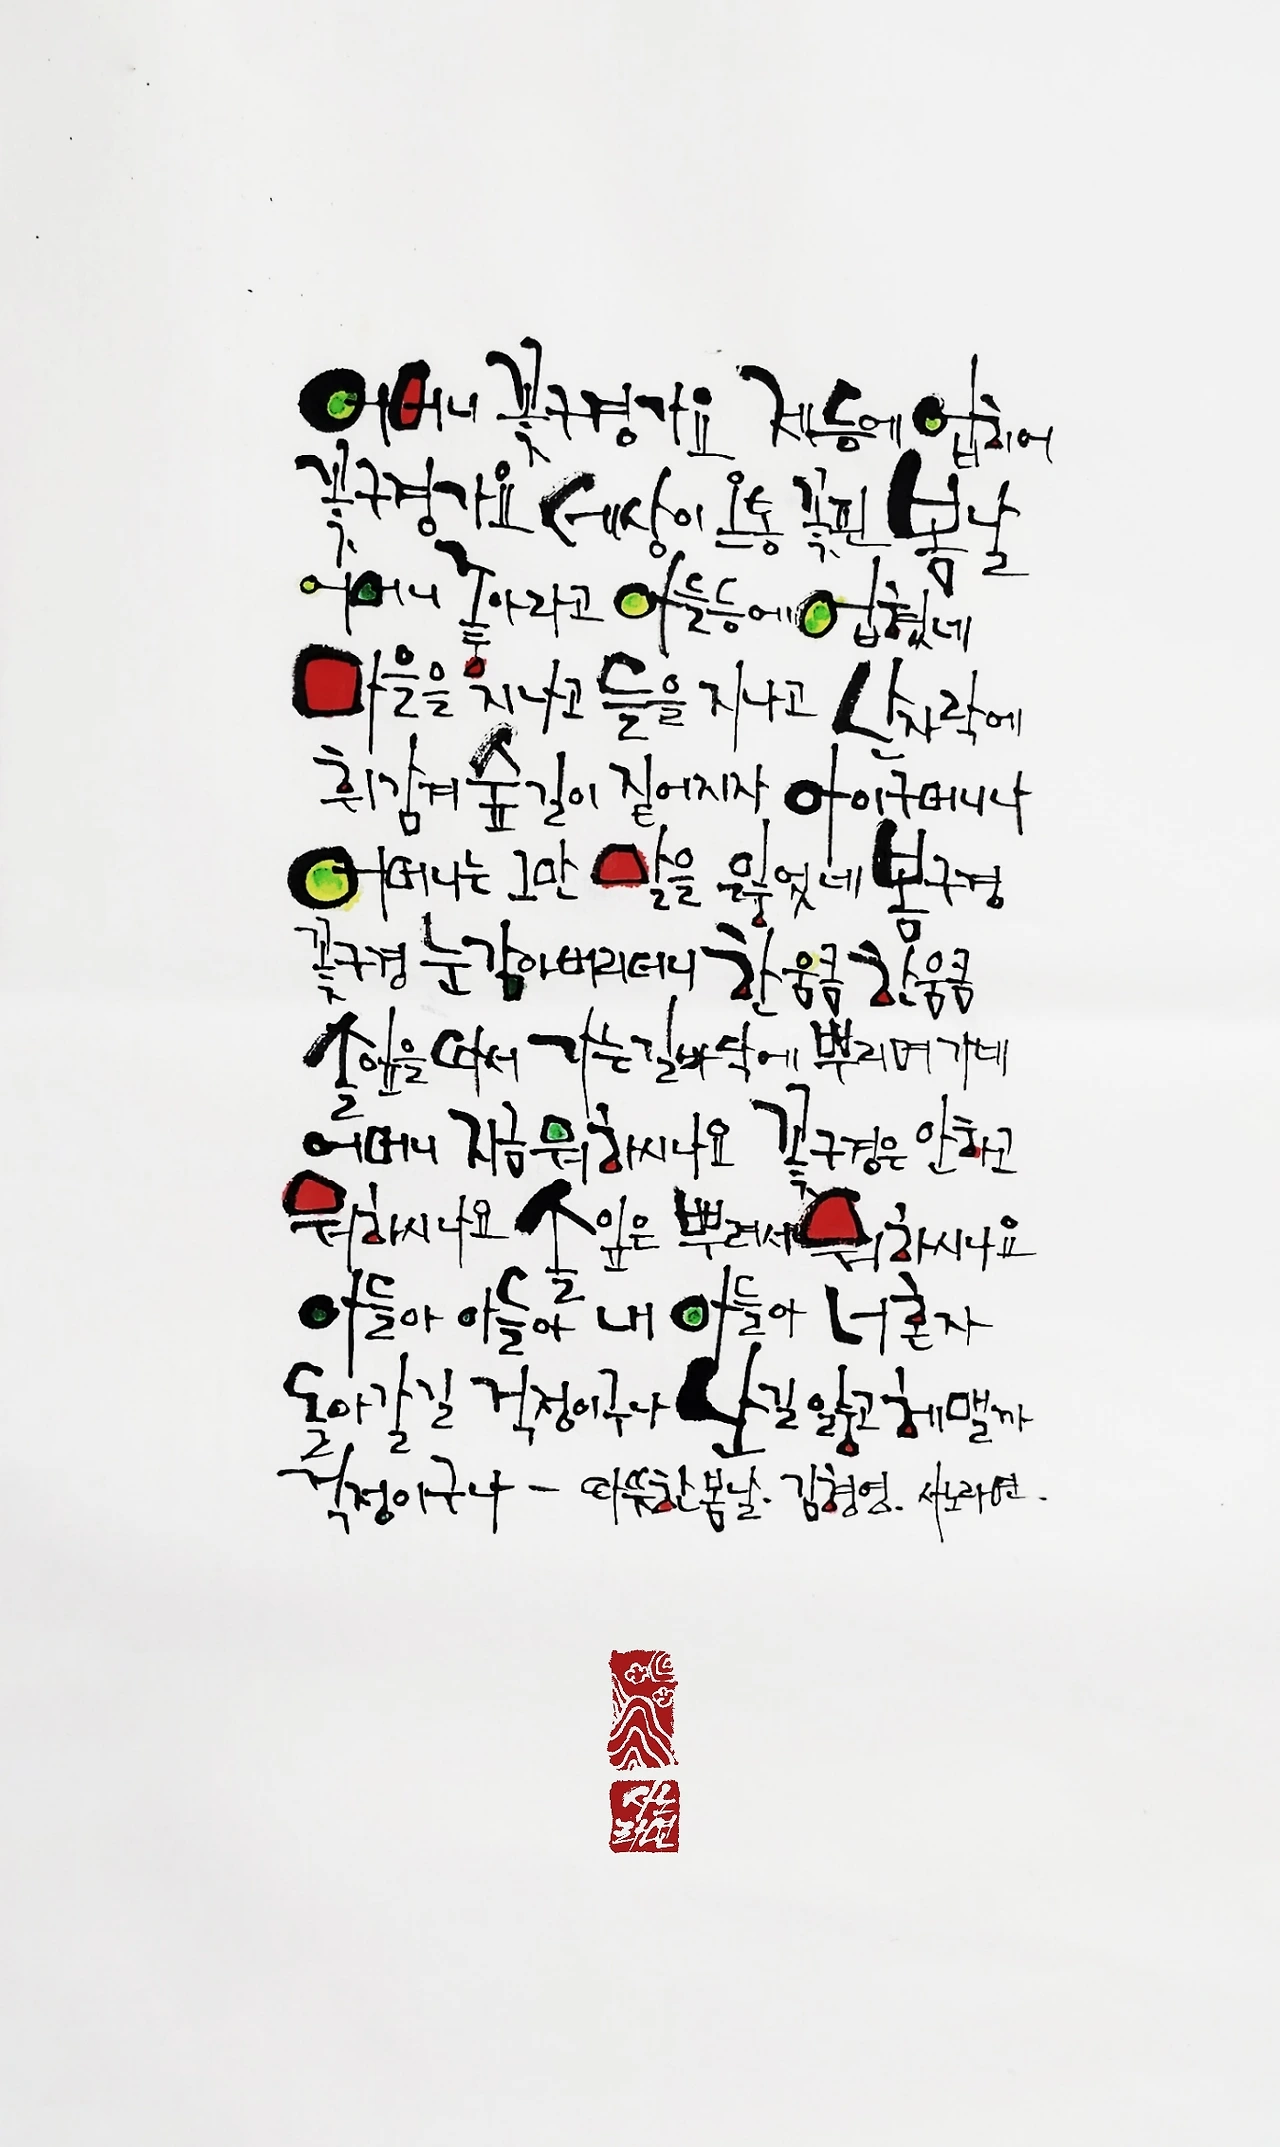 어머니 꽃구경가요 제등에 업히어
꽃구경가요 세상이 온통 꽃핀 봄날
어머니 좋아라고 아들등에 업혔네
마을을 지나고 들을 지나고 산자락에
휘감겨 숲길이 짙어지자 아이구머니나
어머니는 그만 말을 잃었네 봄구경
꽃구경 눈감아버리더니 한움큼 한움큼
솔잎을 따서 가는길바닥에 뿌리며 가네
어머니 지금 뭐하시나요 꽃구경은 안하고
뭐하시나요 솔잎은 뿌려서 뭐하시나요
아들아 아들아 내 아들아 너혼자
돌아갈길 걱정이구나 산길 잃고 헤맬까
걱정이구나 - 따뜻한 봄날. 김형영. 산노라연.